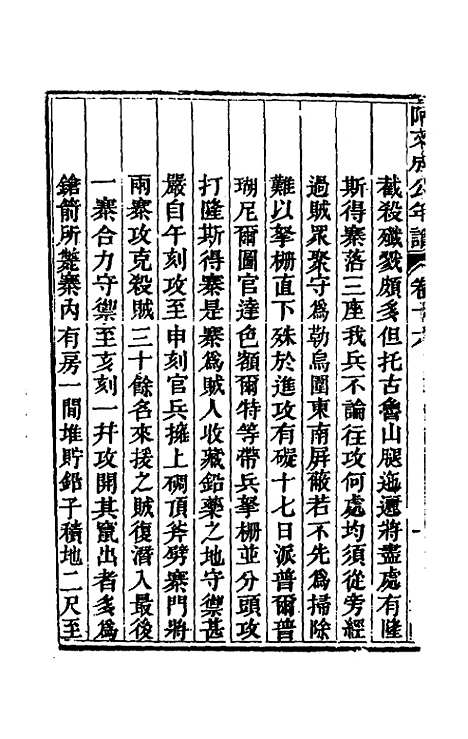 截殺殲戮頗多但托古魯山腿迤邐將盡處有隆
斯得寨落三座我兵不論往攻何處均須從旁經
過賊眾聚守爲勒烏圍東南屏蔽若不先爲掃除
難以拏栅直下殊於進攻有礙十七日派普爾普
瑚尼爾圖官達色額爾特等帶兵拏栅並分頭攻
打隆斯得寨是寨爲賊人收藏鉛藥之地守禦甚
嚴自午刻攻至申刻官兵擁上碉頂斧劈寨門將
兩寨攻克殺賊三十餘名來援之賊復潛入最後
一寨合力守禦至亥刻一幷攻開其竄出者多爲
鎗箭所斃寨內有房一間堆貯鉛子積地二尺至